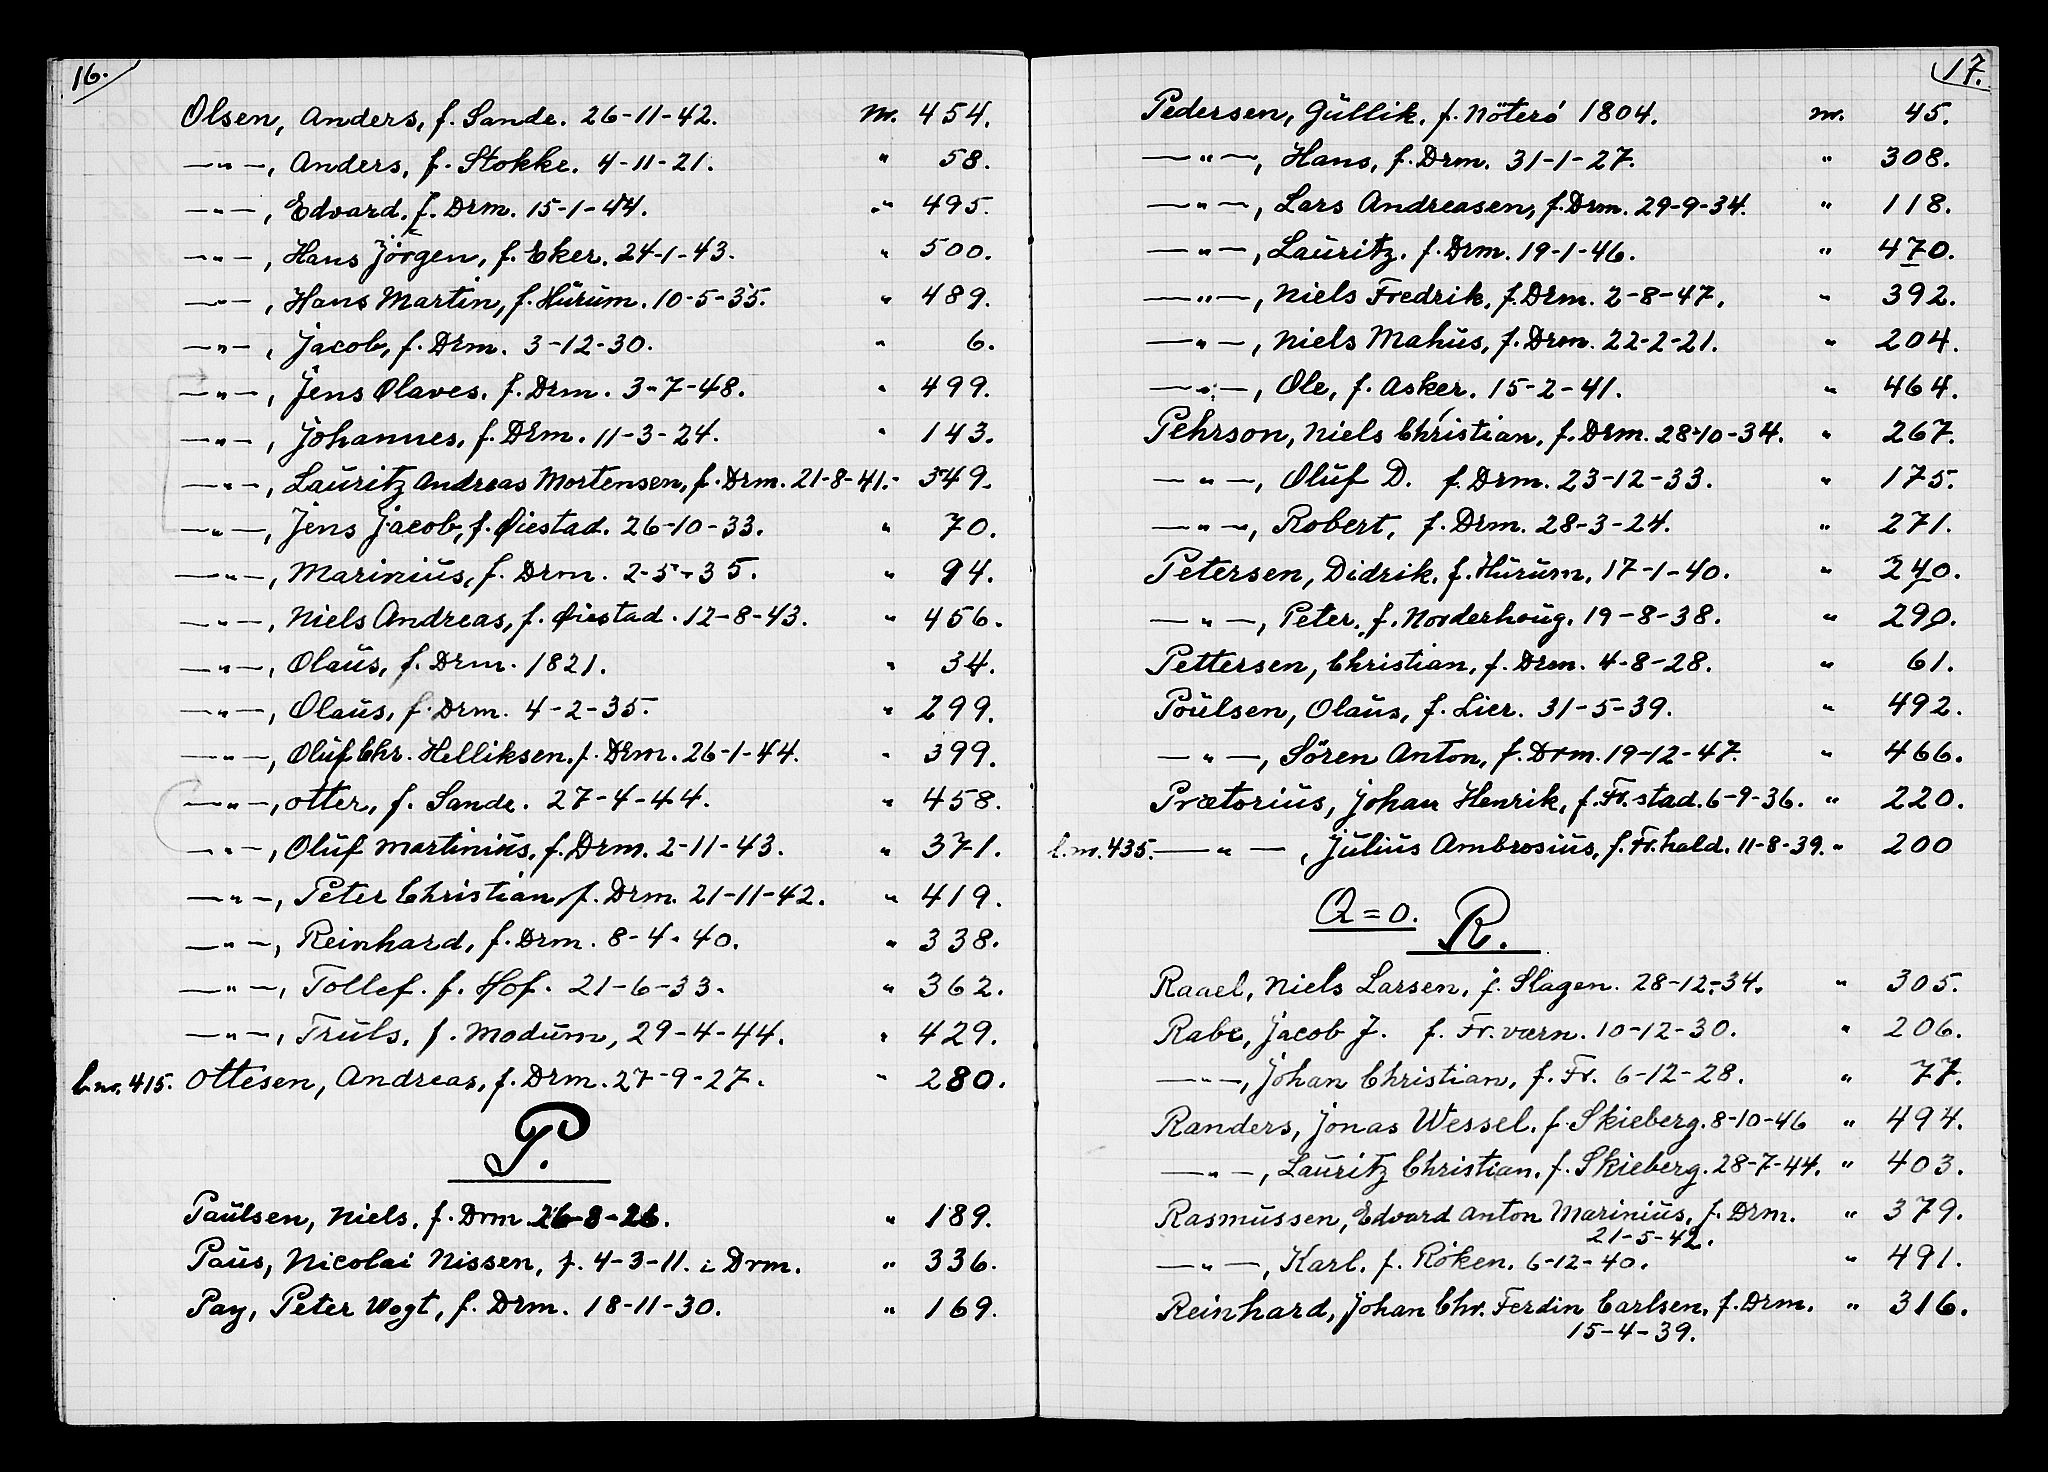 16.
Olsen, Anders, f. Sande. 26-11-42. Nr. 454.
—"—, Anders, f. Stokke. 4-11-21. " 58.
—"—, Edvard. f. Drm. 15-1-44. " 495.
—"—, Hans Jörgen, f. Eker. 24-1-43. " 500.
—"—, Hans Martin, f. Hürüm. 10-5-35. " 489.
—"—, Jacob, f. Drm. 3-12-30. " 6.
—"—, Jens Olaves. f. Drm. 3-7-48. " 499.
—"—, Johannes, f. Drm. 11-3-24. " 143.
—"—, Laüritz Andreas Mortensen, f. Drm. 21-8-41. " 349.
—"—, Jens Jacob, f. Øiestad. 26-10-33. " 70.
—"—, Mariniüs, f. Drm. 2-5-35. " 94.
—"—, Niels Andreas, f. Øiestad. 12-8-43. " 456.
—"—, Olaüs, f. Drm. 1821. " 34.
—"—, Olaüs, f. Drm. 4-2-35. " 299.
—"—, Olüf Chr. Helliksen. f. Drm. 26-1-44. " 399.
—"—, Otter, f. Sande. 27-4-44. " 458.
—"—, Olüf Martiniüs, f. Drm. 2-11-43. " 371.
—"—, Peter Christian, f. Drm. 21-11-42. " 419.
—"—, Reinhard, f. Drm. 8-4-40. " 338.
—"—, Tollef. f. Hof. 21-6-33. " 362.
—"—, Trüls. f. Modüm, 29-4-44. " 429.
L.nr. 415. Ottesen, Andreas, f. Drm. 27-9-27. " 280.
P.
Paülsen, Niels, f. Drm 26-8-26. " 189.
Paüs, Nicolai Nissen, f. 4-3-11. i Drm. " 336.
Pay, Peter Vogt, f. Drm. 18-11-30. " 169.
17.
Pedersen, Güllik, f. Nöterö 1804. nr. 45.
—"—, Hans, f. Drm. 31-1-27. " 308.
—"—, Lars Andreasen, f. Drm. 29-9-34. " 118.
—"—, Laüritz. f. Drm. 19-1-46. " 470.
—"—, Niels Fredrik. f. Drm. 2-8-47. " 392.
—"—, Niels Mahüs, f. Drm. 22-2-21. " 204.
—"—, Ole, f. Asker. 15-2-41. " 464.
Pehrson, Niels Christian, f. Drm. 28-10-34. " 267.
—"—, Olüf D. f. Drm. 23-12-33. " 175.
—"—, Robert, f. Drm. 28-3-24. " 271.
Petersen, Didrik. f. Hürüm. 17-1-40. " 240.
—"—, Peter. f. Norderhoüg. 19-8-38. " 290.
Pettersen, Christian, f. Drm. 4-8-28. " 61.
Poülsen, Olaüs, f. Lier. 31-5-39. " 492.
—"—, Sören Anton, f. Drm. 19-12-47. " 466.
Prætoriüs, Johan Henrik, f. Fr.stad. 6-9-36. " 220.
L.nr. 435. —"—, Jülius Ambrosiüs, f. Fr.hald. 11-8-39. " 200
Q=0. R.
Raael, Niels Larsen, f. Slagen. 28-12-34. " 305.
Rabe, Jacob J. f. Fr.værn. 10-12-30. " 206.
—"—, Johan Christian, f. Fr. 6-12-28. " 77.
Randers, Jonas Wessel. f. Skieberg. 8-10-46 " 494.
—"—, Laüritz Christian, f. Skieberg. 28-7-44. " 403.
Rasmüssen, Edvard Anton Mariniüs, f. Drm. " 379.
21-5-42.
—"—, Karl. f. Röken. 6-12-40. " 491.
Reinhard, Johan Chr. Ferdin Carlsen, f. Drm. " 316.
15-4-39.